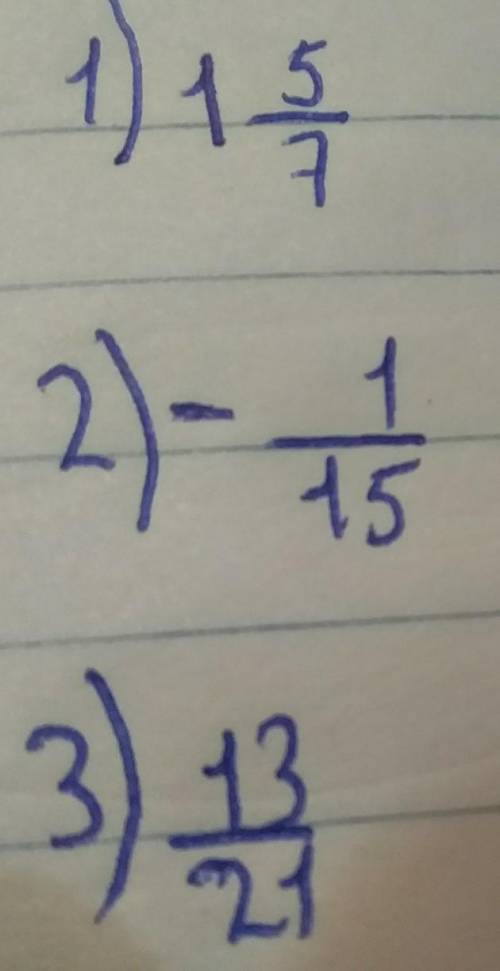 1) 1 5/7
2) - 1/15
3) 13/21